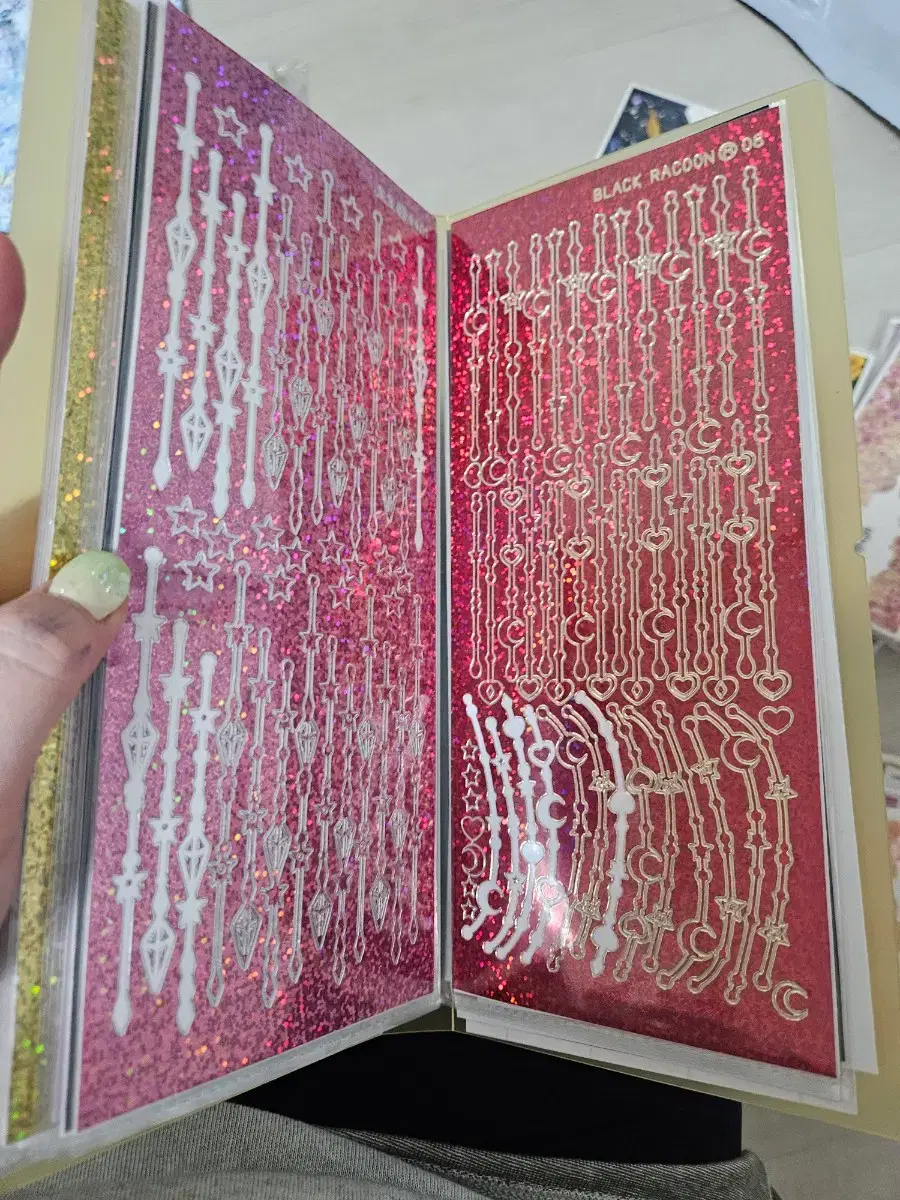 BLACK RACOON ® 06